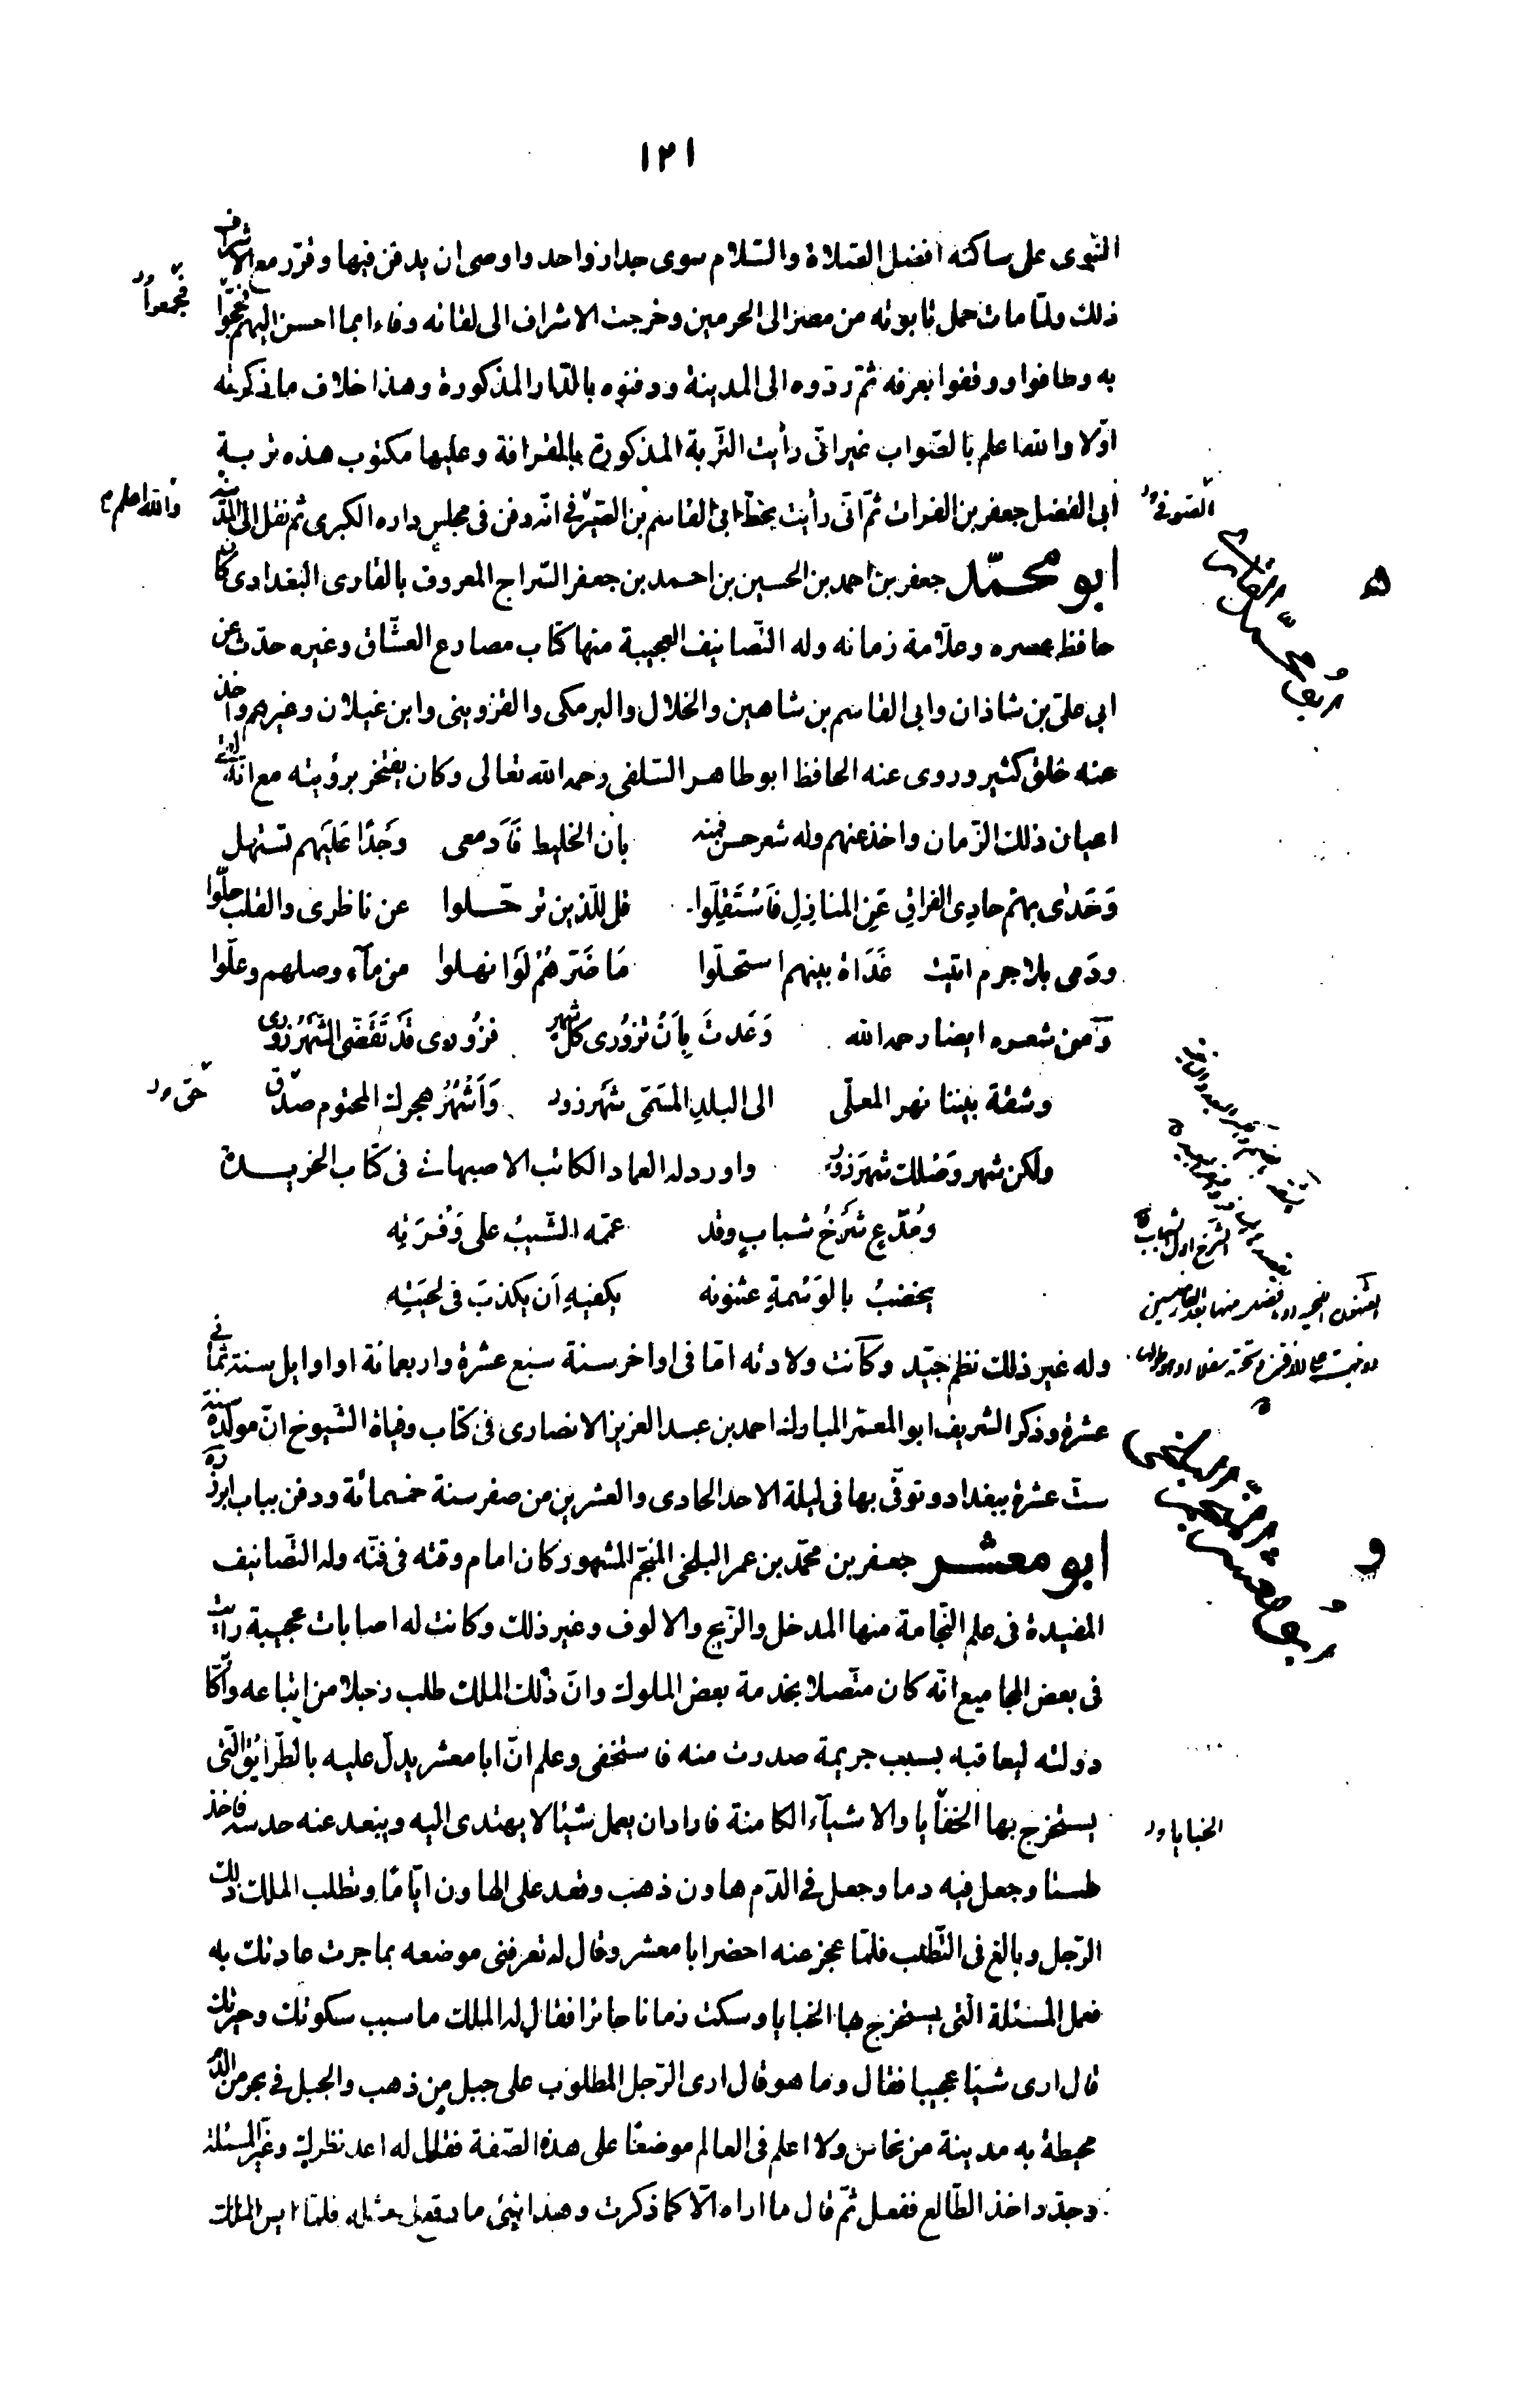 ١٢١
النبوى على ساكنه افضل الصلاة والسلام سوى جدار واحد واوصى ان يدفن فيها وقرر مع الاشراف
ذلك ولما مات حمل تابوته من مصر الى الحرمين وخرجت الاشراف الى لقائه وفاء بما احسن اليهم فحجوا
به وطافوا ووقفوا بعرفه ثم ردوه الى المدينة ودفنوه بالدار المذكورة وهذا خلاف ما ذكرته
اولا والله اعلم بالصواب غير انى رأيت التربة المذكورة بالقرافة وعليها مكتوب هذه تربة
ابى الفضل جعفر بن الفرات ثم انى رأيت بخط ابى القاسم بن الصيرفى انه دفن فى مجلس داره الكبرى ثم نقل الى المدينة
ابو محمد جعفر بن احمد بن الحسين بن احمد بن جعفر السراج المعروف بالقارى البغدادى كان
حافظ عصره وعلامة زمانه وله التصانيف العجيبة منها كتاب مصارع العشاق وغيره حدث عن
ابى على بن شاذان وابى القاسم بن شاهين والخلال والبرمكى والقزوينى وابن غيلان وغيرهم واخذ
عنه خلق كثير وروى عنه الحافظ ابو طاهر السلفى رحمه الله تعالى وكان يفتخر برؤيته مع انه لقى
اعيان ذلك الزمان واخذ عنهم وله شعر حسن فمنه بان الخليط فأدمعى وَجْدًا عَلَيهم تستهل
وَحَدٰى بهم حادِى الفراقِ عَنِ المنازِلِ فَاسْتَقِلّوا قل للذين ترحّلوا عن ناظرى والقلب حلّوا
ودَمى بلا جرم اتيت غَدَاة بينهم استحلّوا مَا ضَرّهُمْ لَوْ انهلوا من مآء وصلهم وعلّوا
ومن شعره ايضا رحمه الله وَعَدتَ بِاَنْ تزوُرى كلّ شهرٍ فزُورى قَدْ تَقَضّى الشّهرُ زُورى
وشقة بيننا نهر المعلّى الى البلدِ المسَمّى شَهرزور وَاَشْهُرُ هجرك المحتوم صدق
ولكن شهر وَصْلك شهرَزورُ واورد له العماد الكاتب الاصبهانى فى كتاب الخريدة
ومُدّعٍ شَرْخُ شبابٍ وقد عمّمه الشّيبُ على وَفْرَتِه
يخضبُ بالوَسْمةِ عثنونه يكفيهِ اَن يكذبَ فى لحيَتِه
وله غير ذلك نظم جيد وكانت ولادته اما فى اواخر سنة سبع عشرة واربعمائة او اوايل سنة ثمانى
عشرة وذكر الشريف ابو المعمر المبارك احمد بن عبد العزيز الانصارى فى كتاب وفياة الشيوخ ان مولده سنة
ست عشرة ببغداد وتوفى بها فى ليلة الاحد الحادى والعشرين من صفر سنة خمسمائة ودفن بباب ابرز ره
ابو معشر جعفر بن محمد بن عمر البلخى المنجم المشهور كان امام وقته فى فنه وله التصانيف
المفيدة فى علم النجامة منها المدخل والزيج والالوف وغير ذلك وكانت له اصابات عجيبة رأيت
فى بعض المجاميع انه كان متصلا بخدمة بعض الملوك وان ذلك الملك طلب رجلا من اتباعه واكابر
دولته ليعاقبه بسبب جريمة صدرت منه فاستخفى وعلم ان ابا معشر يدل عليه بالطرايق التى
يستخرج بها الخفايا والاشيآء الكامنة فاراد ان يعمل شيئا لا يهتدى اليه ويبعد عنه حدسه فاخذ
طستا وجعل فيه دما وجعل فى الدم هاون ذهب وقعد على الهاون ايامًا وتطلب الملك ذلك
الرجل وبالغ فى التطلب فلما عجز عنه احضر ابا معشر وقال له تعرفنى موضعه بما جرت عادتك به
فعمل المسئلة التى يستخرج بها الخبايا وسكت زمانا حائرا فقال له الملك ما سبب سكوتك وحيرتك
قال ارى شيئا عجيبا فقال وما هو قال ارى الرجل المطلوب على جبل من ذهب والجبل فى بحر من الدم
محيطة به مدينة من نحاس ولا اعلم فى العالم موضعًا على هذه الصفة فقال له اعد نظرك وغير المسئلة
وجدد اخذ الطالع ففعل ثم قال ما اراه الا كما ذكرت وهذا شئ ما وقع لى مثله فلما ايس الملك
فجمعوا
والله اعلم
الصوفى
ابو محمد القارى
ه
الشرخ اول الشباب
ابو معشر المنجم البلخى
و
الخبايا